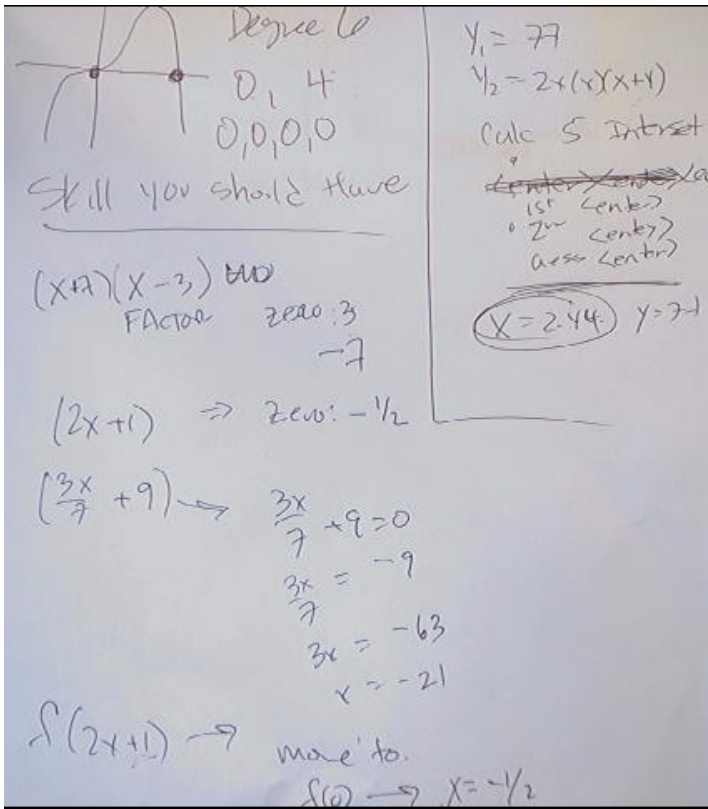 Degree 6
0, 4
0,0,0,0
Skill you should Have
(x+7)(x-3)
FACTOR zero: 3
-7
(2x+1) ⇒ zero: -1/2
(3x/7 + 9) → 3x/7 + 9 = 0
3x/7 = -9
3x = -63
x = -21
f(2x+1) → move to.
f(0) → x = -1/2
Y₁ = 77
Y₂ = 2x(x)(x+4)
Calc 5
1st <enter>
2nd <enter>
<enter>
X = 2.44